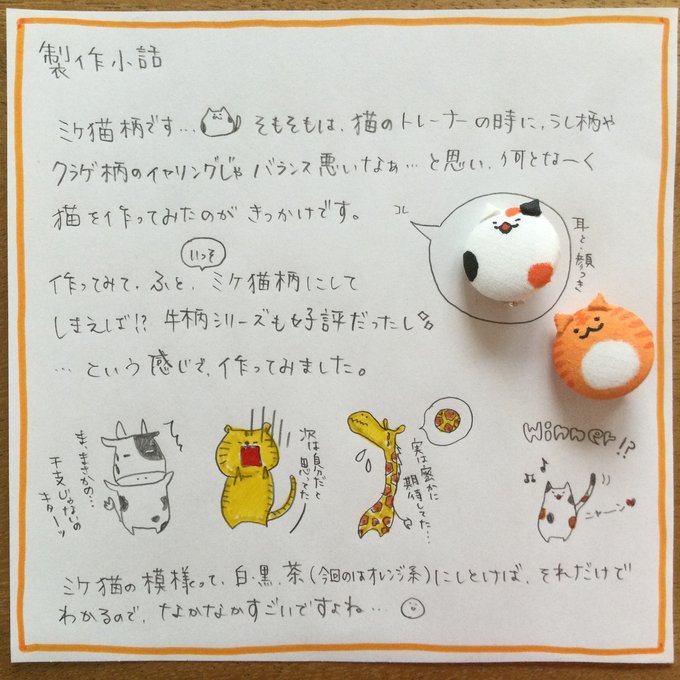 製作小話
ミケ猫柄です… そもそもは、猫のトレーナーの時に、うし柄や
クラゲ柄のイヤリングじゃ バランス悪いなぁ…と思い、何となーく
猫を作ってみたのが きっかけです。
コレ
耳と・顔つき
いっそ
作ってみて、ふと、ミケ猫柄にして
しまえば!? 牛柄シリーズも好評だったし
…という感じで、作ってみました。
ま、まさかの…
干支じゃないの
キターッ
次は自分だと
思ってた
実は密かに
期待してた…
winner!?
ニャーン
ミケ猫の模様って、白・黒・茶(今回のはオレンジ系)にしとけば、それだけで
わかるので、なかなかすごいですよね…